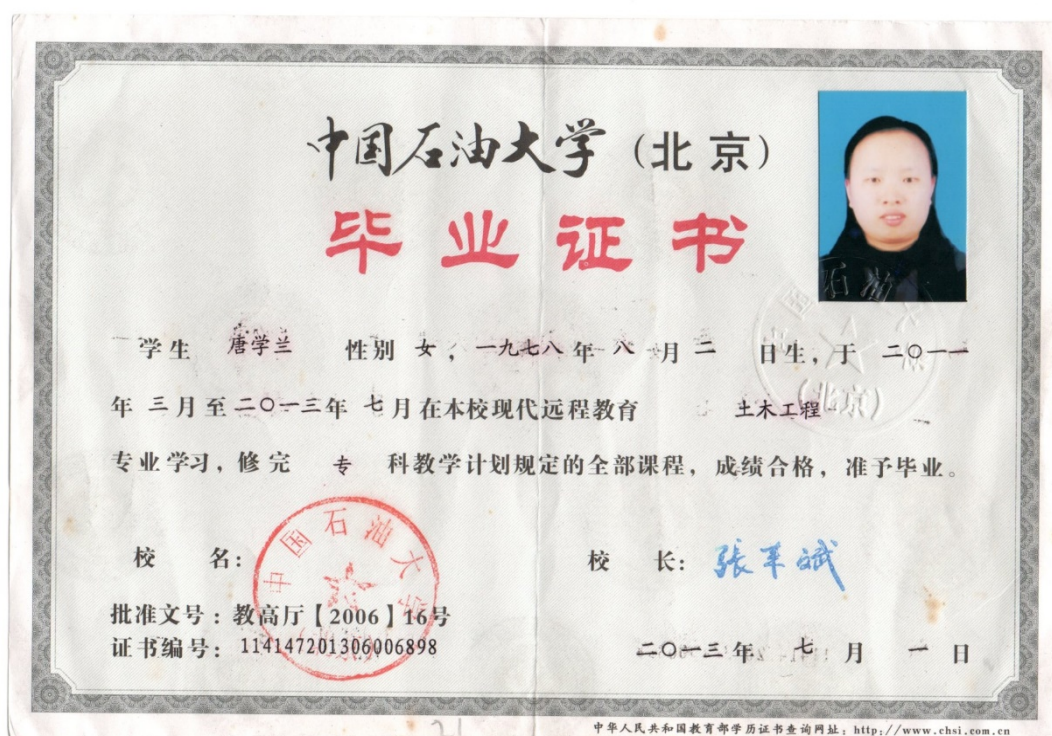 中国石油大学（北京）
毕业证书
学生 唐学兰 性别 女，一九七八年 八 月 二 日生，于 二〇一一
年 三月至二〇一三年 七月在本校现代远程教育 土木工程
专业学习，修完 专 科教学计划规定的全部课程，成绩合格，准予毕业。
校 名：
校 长：张来斌
中国石油大学
批准文号：教高厅【2006】16号
证书编号：114147201306006898
二〇一三年 七 月 一 日
中华人民共和国教育部学历证书查询网址：http://www.chsi.com.cn